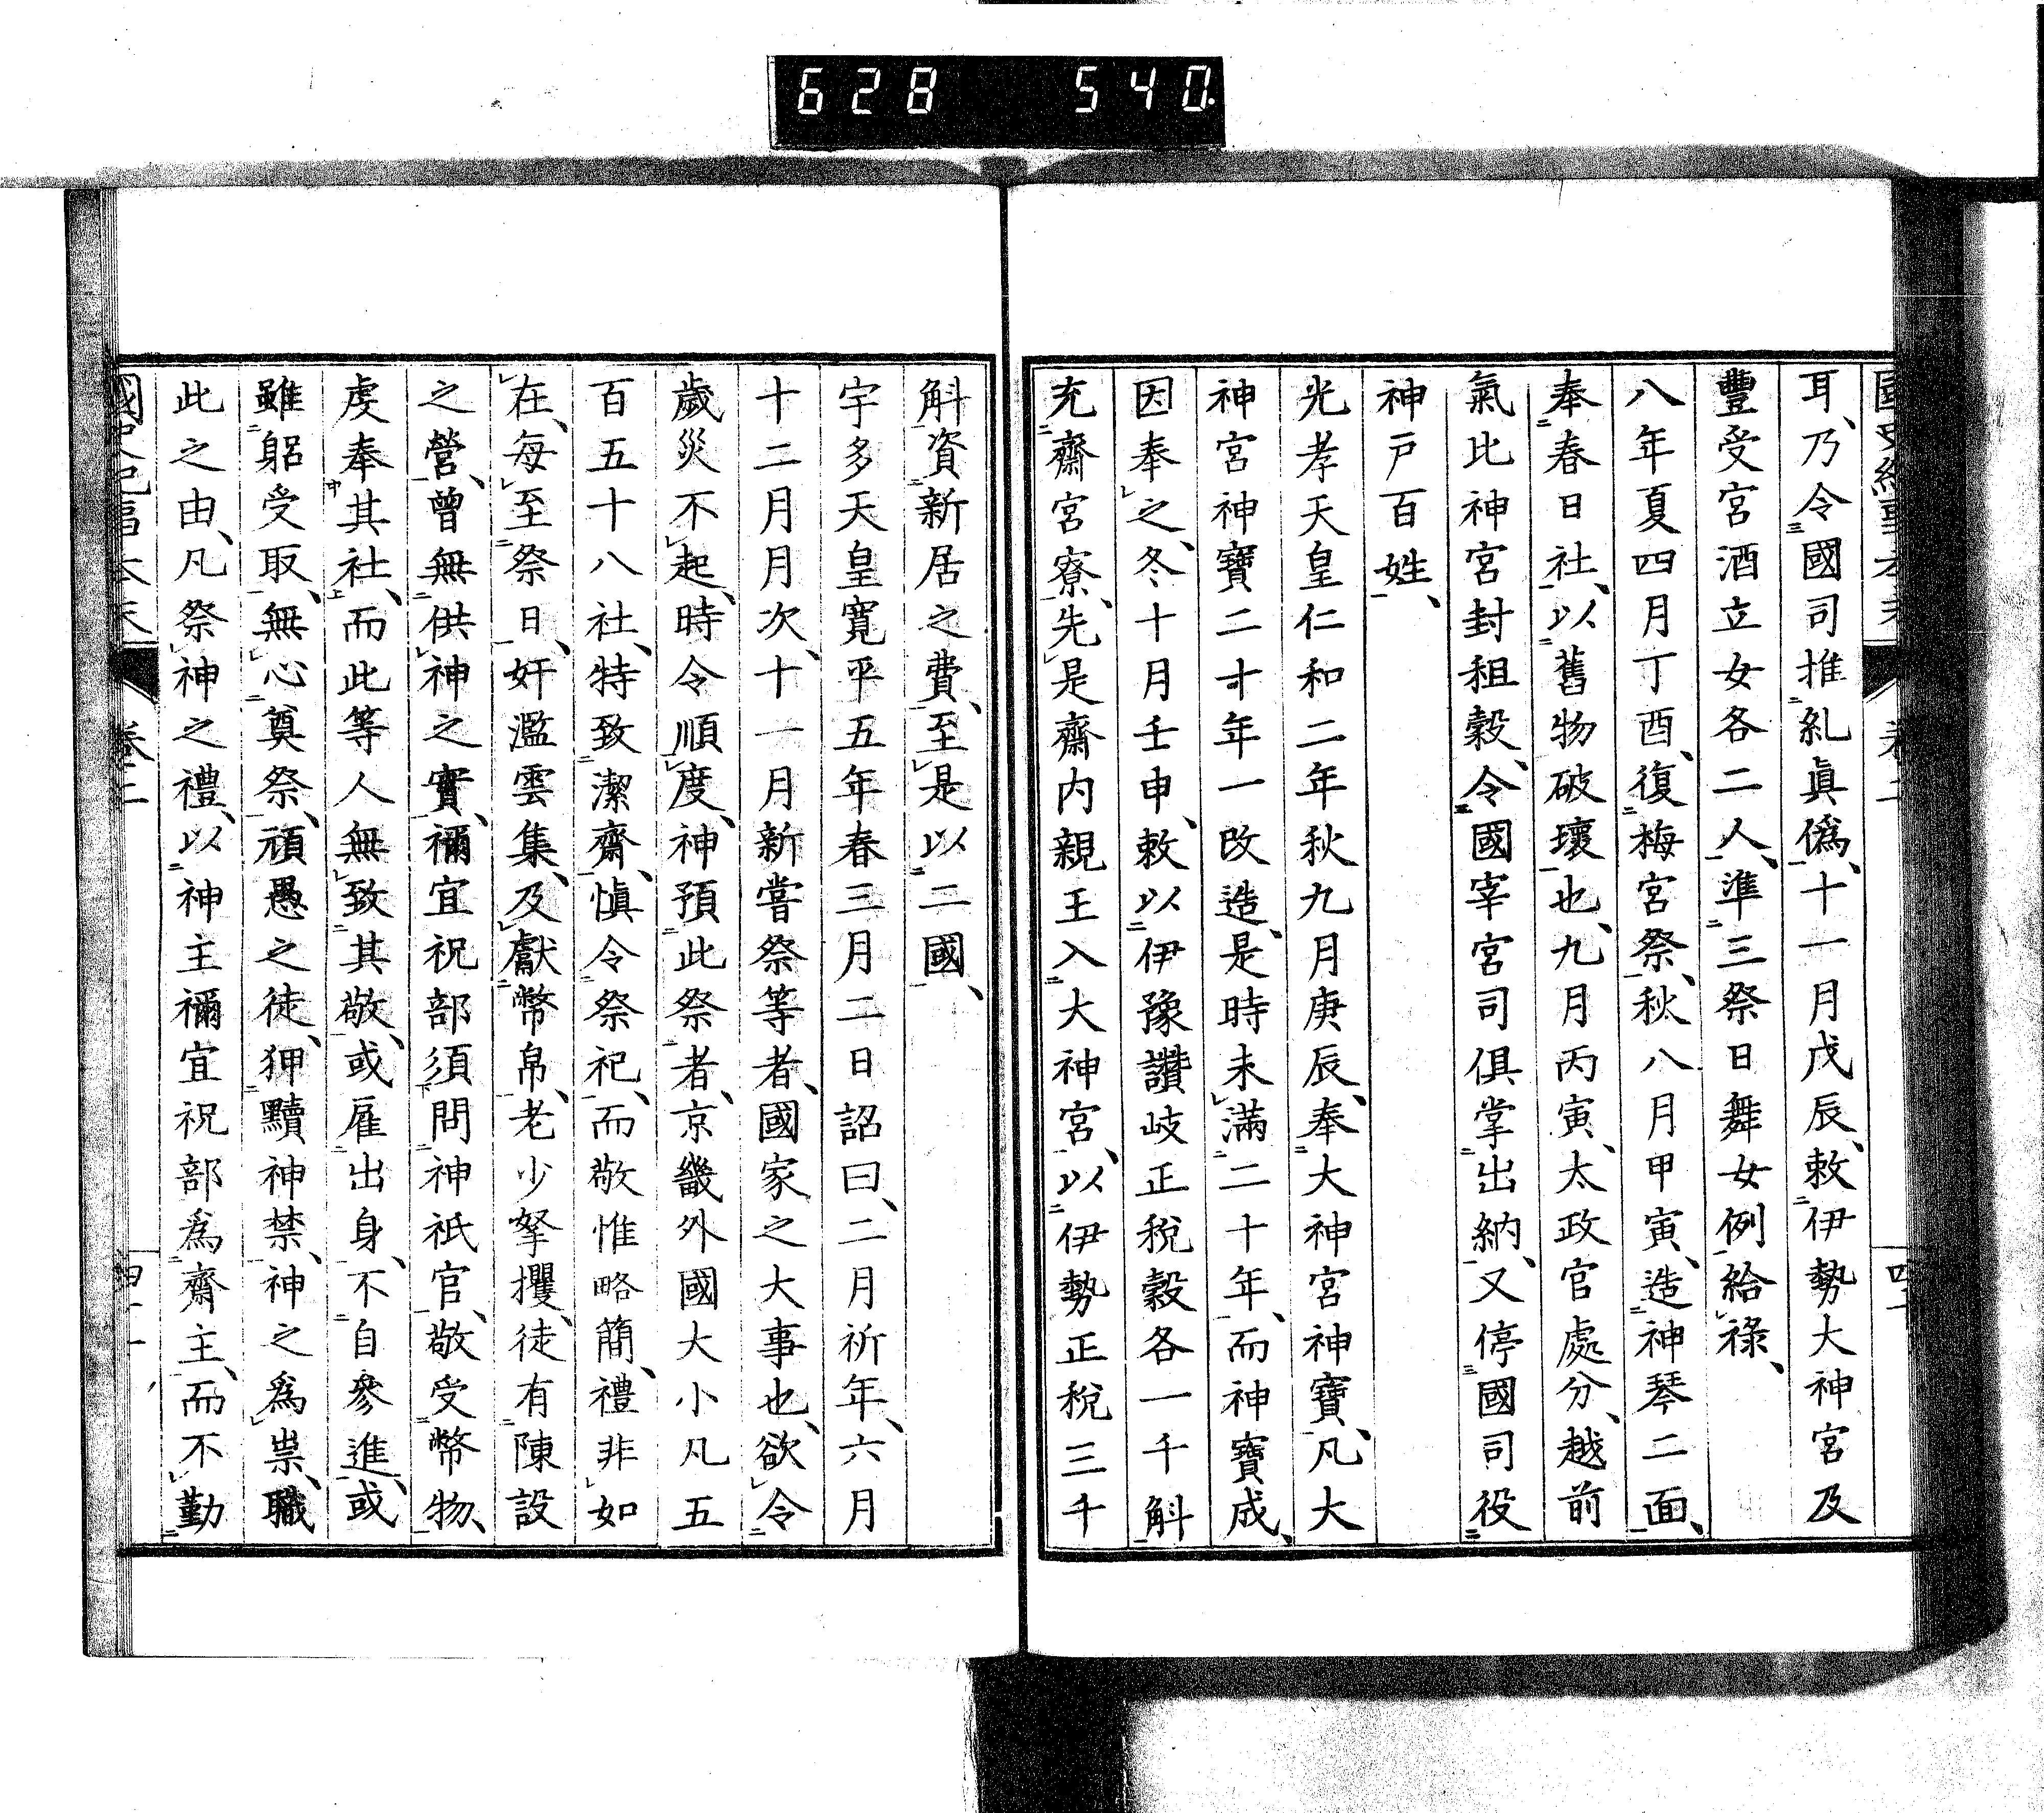 628 540
耳、乃令國司推糺眞僞、十一月戊辰、敕伊勢大神宮及
豐受宮酒立女各二人、準三祭日舞女例給祿、
八年夏四月丁酉、復梅宮祭、秋八月甲寅、造神琴二面、
奉春日社、以舊物破壞也、九月丙寅、太政官處分、越前
氣比神宮封租穀、令國宰宮司俱掌出納、又停國司役
神戸百姓、
光孝天皇仁和二年秋九月庚辰、奉大神宮神寶、凡大
神宮神寶二十年一改造、是時未滿二十年、而神寶成、
因奉之、冬十月壬申、敕以伊豫讚岐正稅穀各一千斛
充齋宮寮、先是齋內親王入大神宮、以伊勢正稅三千
斛資新居之費、至是以二國、
宇多天皇寬平五年春三月二日詔曰、二月祈年、六月
十二月月次、十一月新嘗祭等者、國家之大事也、欲令
歲災不起、時令順度、神預此祭者、京畿外國大小凡五
百五十八社、特致潔齋、愼令祭祀、而敬惟略簡、禮非如
在、每至祭日、奸濫雲集、及獻幣帛、老少拏攫、徒有陳設
之營、曾無供神之實、禰宜祝部須問神祇官、敬受幣物、
虔奉其社、而此等人無致其敬、或雇出身、不自參進、或
雖躬受取、無心奠祭、頑愚之徒、狎黷神禁、神之爲祟、職
此之由、凡祭神之禮、以神主禰宜祝部爲齋主、而不勤